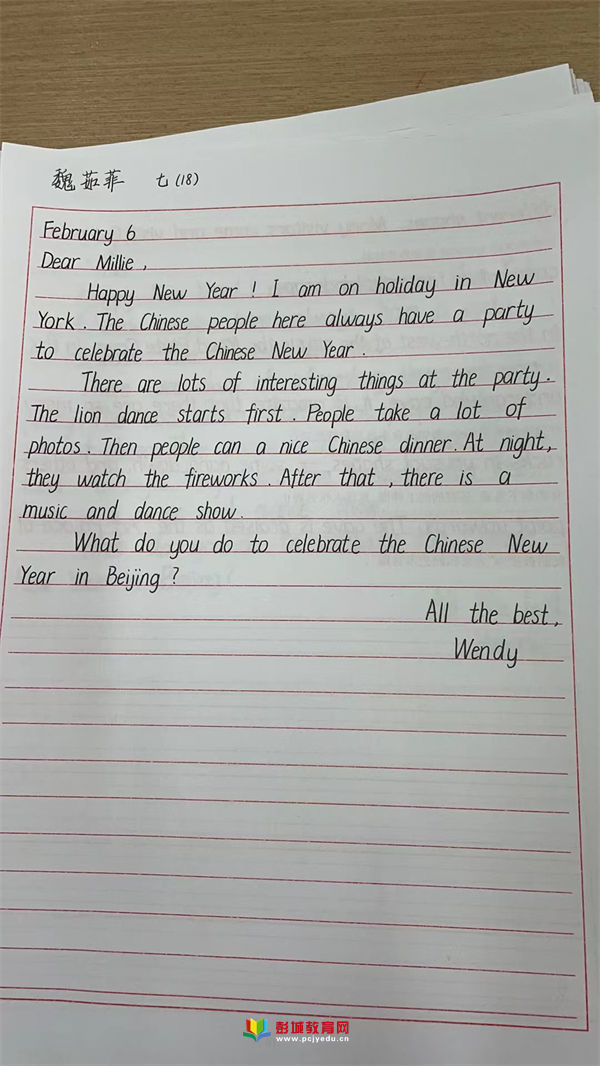 魏茹菲 七(18)
February 6
Dear Millie,
Happy New Year! I am on holiday in New
York. The Chinese people here always have a party
to celebrate the Chinese New Year.
There are lots of interesting things at the party.
The lion dance starts first. People take a lot of
photos. Then people can a nice Chinese dinner. At night,
they watch the fireworks. After that, there is a
music and dance show.
What do you do to celebrate the Chinese New
Year in Beijing?
All the best,
Wendy
彭城教育网
www.pcjyedu.cn